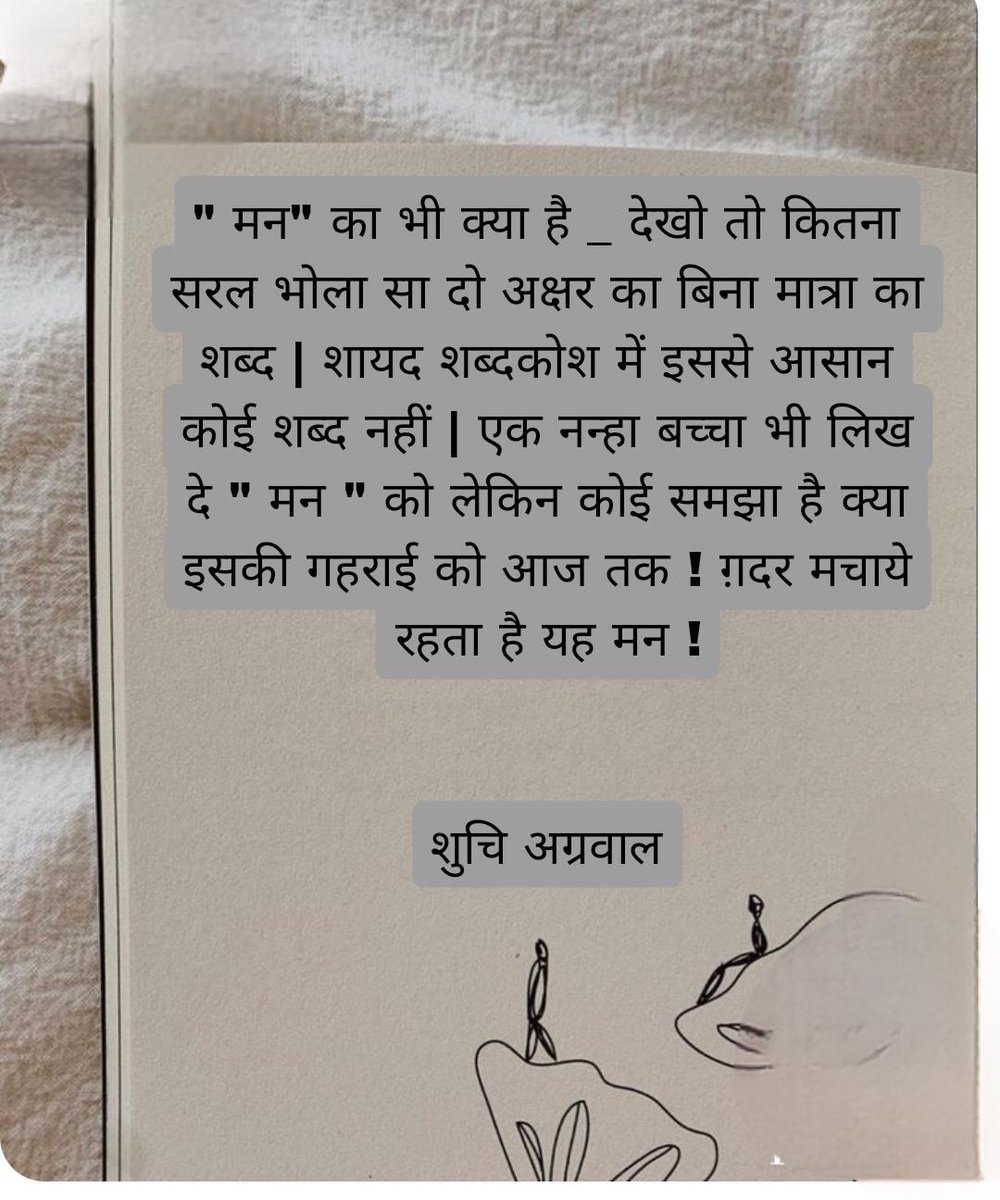 " मन" का भी क्या है _ देखो तो कितना
सरल भोला सा दो अक्षर का बिना मात्रा का
शब्द | शायद शब्दकोश में इससे आसान
कोई शब्द नहीं | एक नन्हा बच्चा भी लिख
दे " मन " को लेकिन कोई समझा है क्या
इसकी गहराई को आज तक ! ग़दर मचाये
रहता है यह मन !
शुचि अग्रवाल